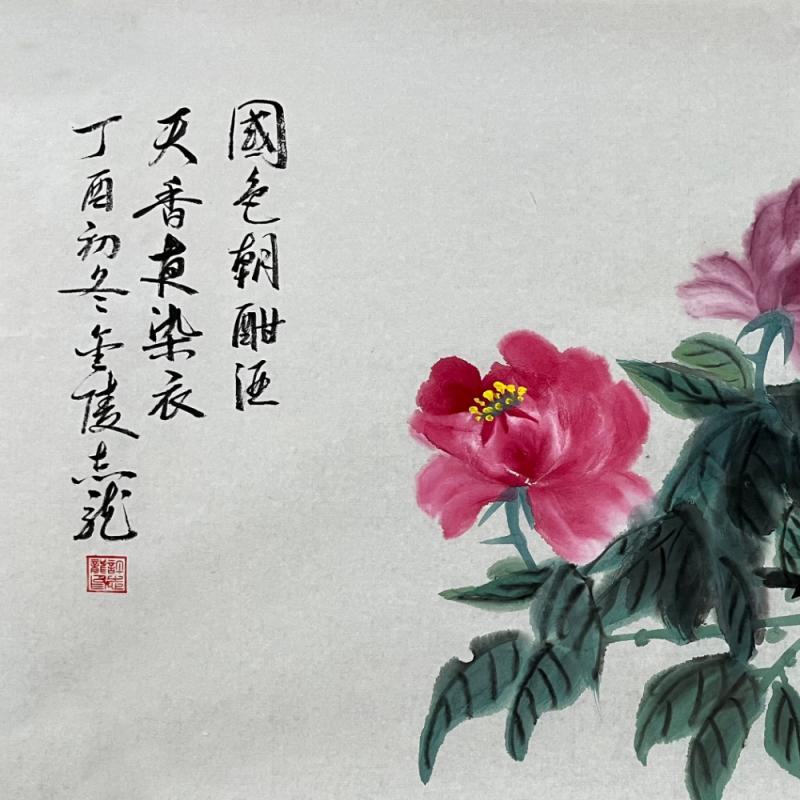 國色朝酣酒
天香夜染衣
丁酉初冬金陵志龍